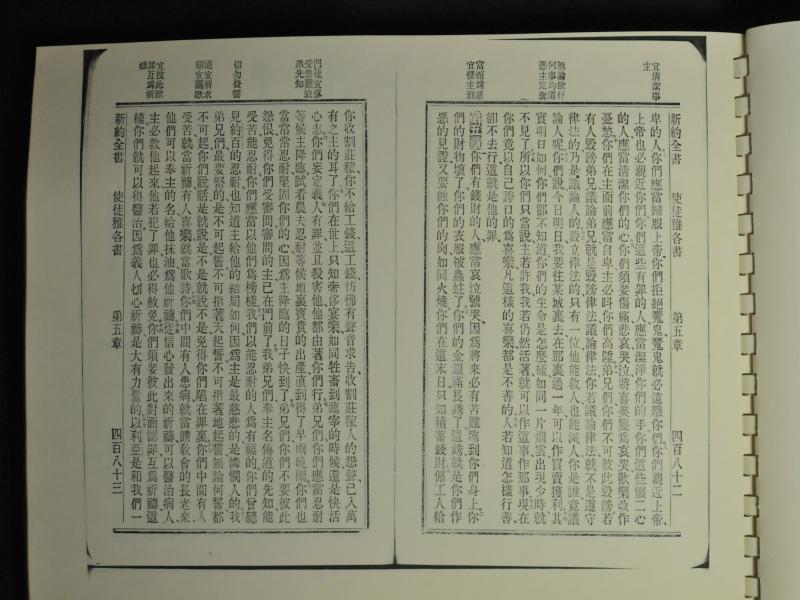 宜清潔事主
無論欲行何事均須憑主定奪
富而為惡宜懼主刑
新約全書 使徒雅各書 第五章 四百八十二
卑的人、你們應當歸服上帝、你們拒絕魔鬼、魔鬼就必遠離你們、你們親近上帝、
上帝也必親近你們、你們這些有罪的人、應當潔淨你們的手、你們這些懷二心
的人、應當清潔你們的心、你們須要傷痛悲哀哭泣、將喜笑變為哀哭、歡樂改作
憂愁、你們在主面前、應當自卑、主必叫你們高陞、弟兄們、你們不可彼此毀謗、若
有人毀謗弟兄、議論弟兄、就是毀謗律法、議論律法、你若議論律法、就不是遵守
律法的、乃是議論人的、設立律法的、只有一位、他能救人、也能滅人、你是誰、竟議
論人呢、你們說、今日明日、我們要往某城裏去、在那裏過一年、可以作買賣獲利、其
實明日如何、你們都不知道、你們的生命是怎麼礙、如同一片烟雲、出現少時、就
不見了、所以你們只當說、主若許我、我若仍然活著、就可以作這事、作那事、現在
你們竟以自己誇口的為喜樂、凡這樣的喜樂、都是不善的、人若知道怎樣行善、
卻不去行、這就是他的罪、
第五章 你們有錢財的人、應當哀泣號哭、因為將來必有苦難臨到你們身上、你
們的財物壞了、你們的衣服被蟲蛀了、你們的金銀滿長銹了、這銹就是你們作
惡的見證、又要蝕你們的肉、如同火燒、你們在這末日、只知積蓄錢財、僱工人給
門徒宜忍受患難效眾先知
切勿發誓
遭宜祈求順宜謳歌
宜彼此認罪互為祈禱
你收割莊稼、你不給工錢、這工錢彷彿有聲音求告、收割莊稼人的怨聲、已入萬
有之主的耳了、你們在世上、只知奢侈宴樂、如同牲畜到臨宰的時候、還是快活
心志、你們妄定義人有罪、並且殺害他、他都由著你們行、弟兄們、你們應當忍耐
等候主降臨、試看農夫忍耐等候地裏寶貴的出產、直到得了早雨晚雨、你們也
當常常忍耐、堅固你們的心、因為主降臨的日子快到了、弟兄們、你們不要彼此
怨恨、免得你們受審問、審問的主、已在門前了、我弟兄們、奉主名傳道的先知、能
受苦能忍耐、你們應當以他們為榜樣、我們以能忍耐的人為有福的、你們曾聽
見約百的忍耐、也知道主給他的結局如何、因為主是最慈悲的、是憐憫人的、我
弟兄們、最要緊的、是不可起誓、不可指著天起誓、不可指著地起誓、無論何誓、都
不可起、你們說話、是就說是、不是就說不是、免得你們陷在罪裏、你們中間有人
受苦、就當祈禱、有人喜樂、就當歌詩、你們中間有人患病、就當請教會的長老來、
他們可以奉主的名、給他抹油、為他祈禱、從信心發出來的祈禱、可以醫治病人、
主必救他起來、他若犯了罪、也必得赦免、你們須要彼此對面認罪、互為祈禱、這
樣你們就可以得醫治、因為義人切心祈禱、是大有力量的、以利亞是和我們一
新約全書 使徒雅各書 第五章 四百八十三